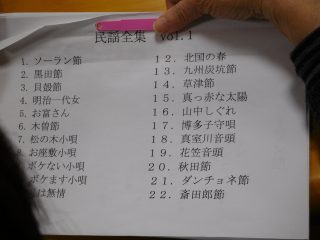 民謡全集 vol.1
1. ソーラン節
2. 黒田節
3. 貝殻節
4. 明治一代女
5. お富さん
6. 木曽節
7. 松の木小唄
8. お座敷小唄
ボケない小唄
ボケます小唄
は無情
12. 北国の春
13. 九州炭坑節
14. 草津節
15. 真っ赤な太陽
16. 山中しぐれ
17. 博多子守唄
18. 真室川音頭
19. 花笠音頭
20. 秋田節
21. ダンチョネ節
22. 斎田郎節